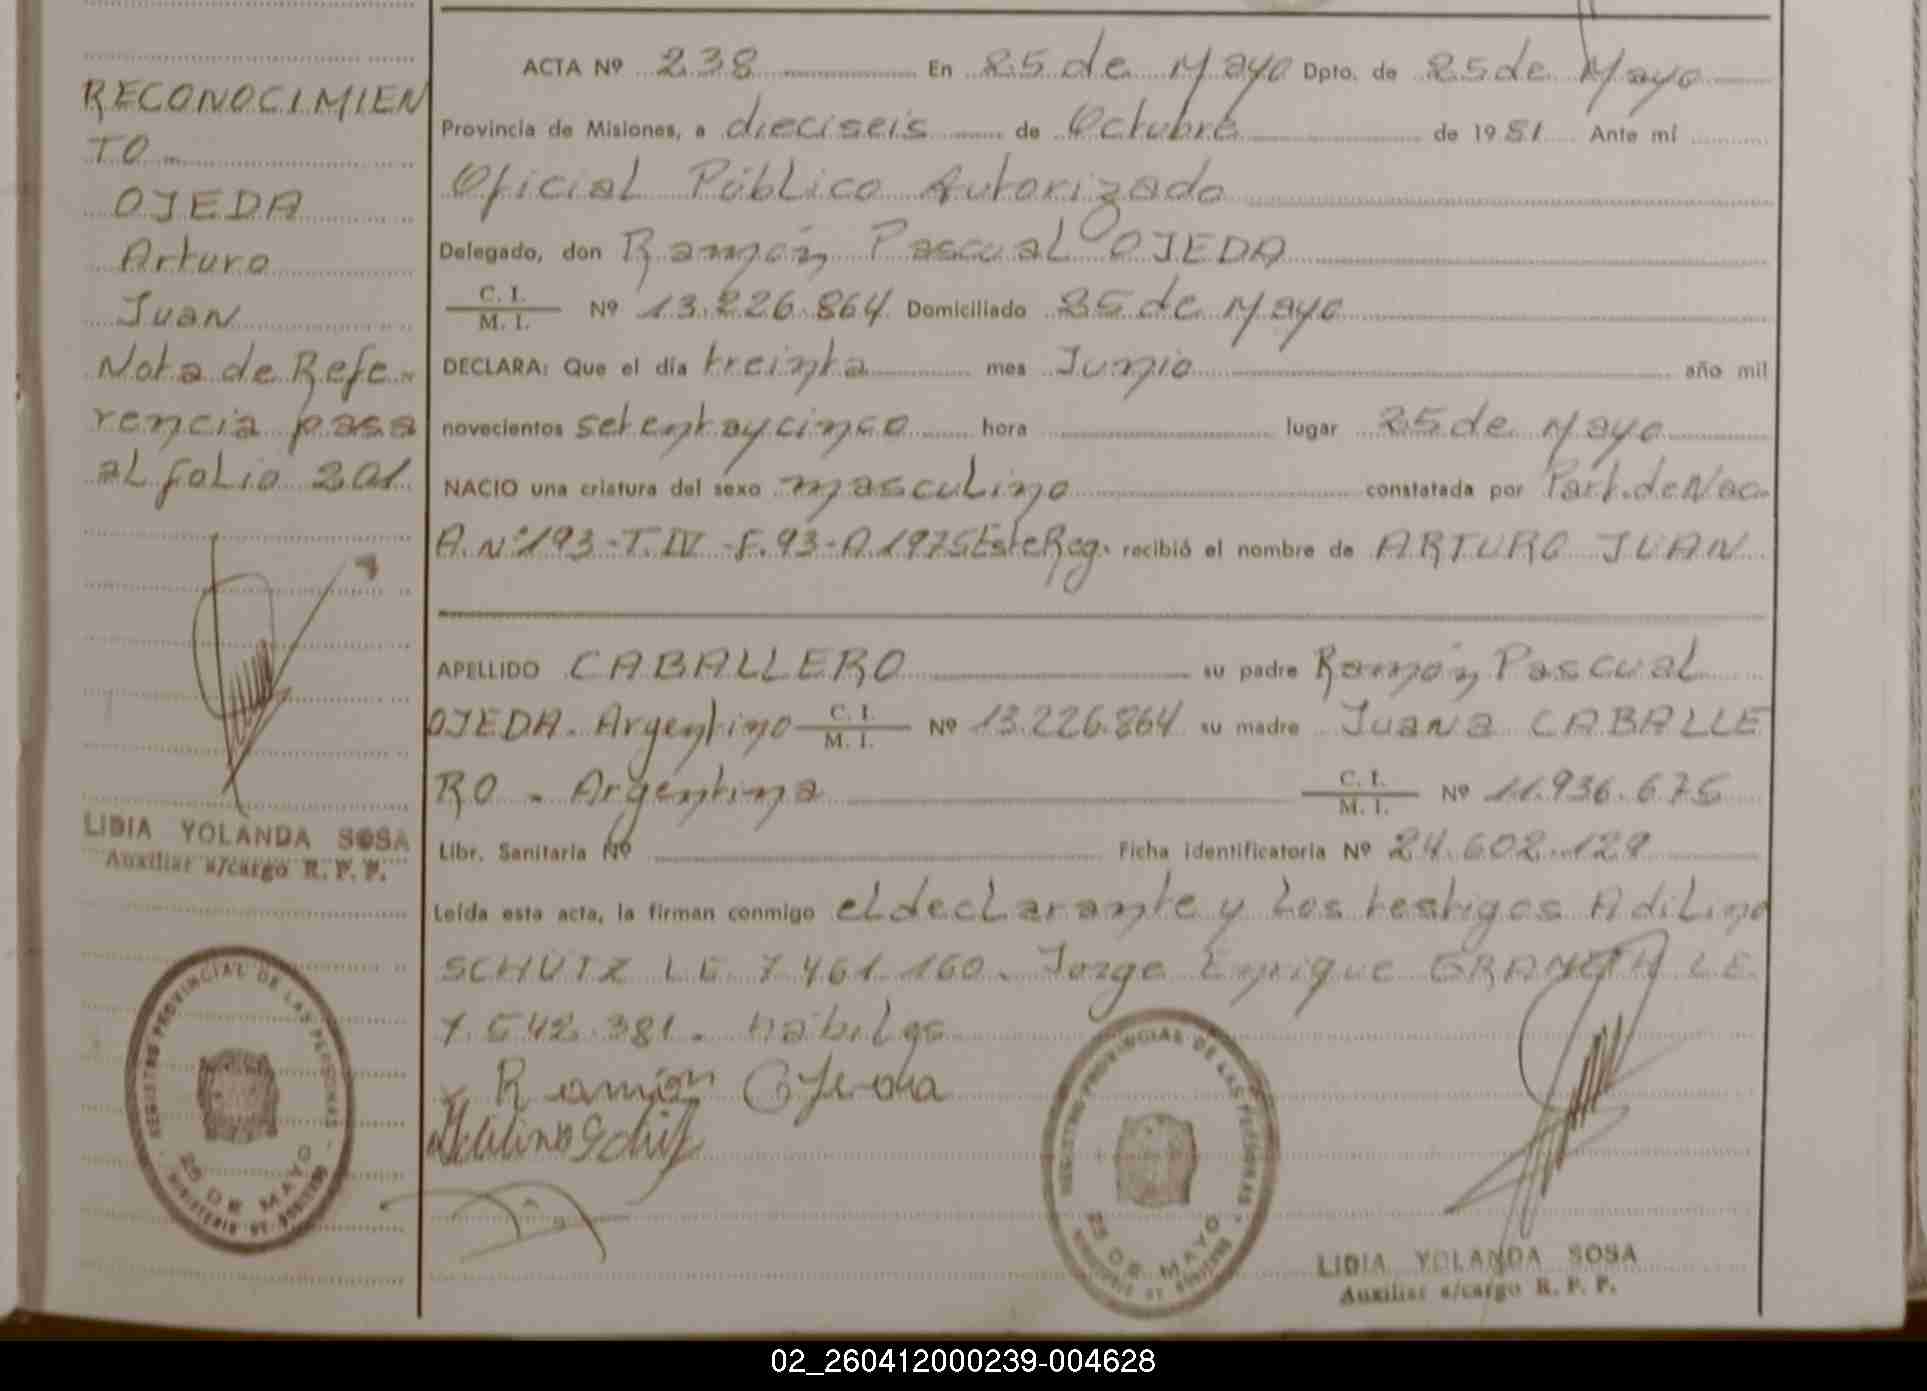 RECONOCIMIEN
TO -
OJEDA
Arturo
Juan
Nota de Refe-
rencia pasa
al folio 201
LIDIA YOLANDA SOSA
Auxiliar a/cargo R. P. P.
REGISTRO PROVINCIAL DE LAS PERSONAS
25 DE MAYO
ACTA Nº 238 En 25 de Mayo Dpto. de 25 de Mayo
Provincia de Misiones, a dieciseis de Octubre de 1981 Ante mí
Oficial Público Autorizado
Delegado, don Ramón Pascual OJEDA
C. I. / M. I. Nº 13.226.864 Domiciliado 25 de Mayo
DECLARA: Que el día treinta mes Junio año mil
novecientos setentaycinco hora lugar 25 de Mayo
NACIO una criatura del sexo masculino constatada por Part. de Nac.
A. Nº 193 - T. IV - F. 93 - A. 1975 Este Reg. recibió el nombre de ARTURO JUAN
APELLIDO CABALLERO su padre Ramón Pascual
OJEDA. Argentino C. I. / M. I. Nº 13.226.864 su madre Juana CABALLE
RO - Argentina C. I. / M. I. Nº 11.936.675
Libr. Sanitaria Nº Ficha identificatoria Nº 24.602.129
Leída esta acta, la firman conmigo el declarante y los testigos Adilino
SCHUTZ L.E. 7.461.160. Jorge Enrique L.E.
7.542.381. habiles
Ramón Ojeda
REGISTRO PROVINCIAL DE LAS PERSONAS
25 DE MAYO
LIDIA YOLANDA SOSA
Auxiliar a/cargo R. P. P.
02_260412000239-004628